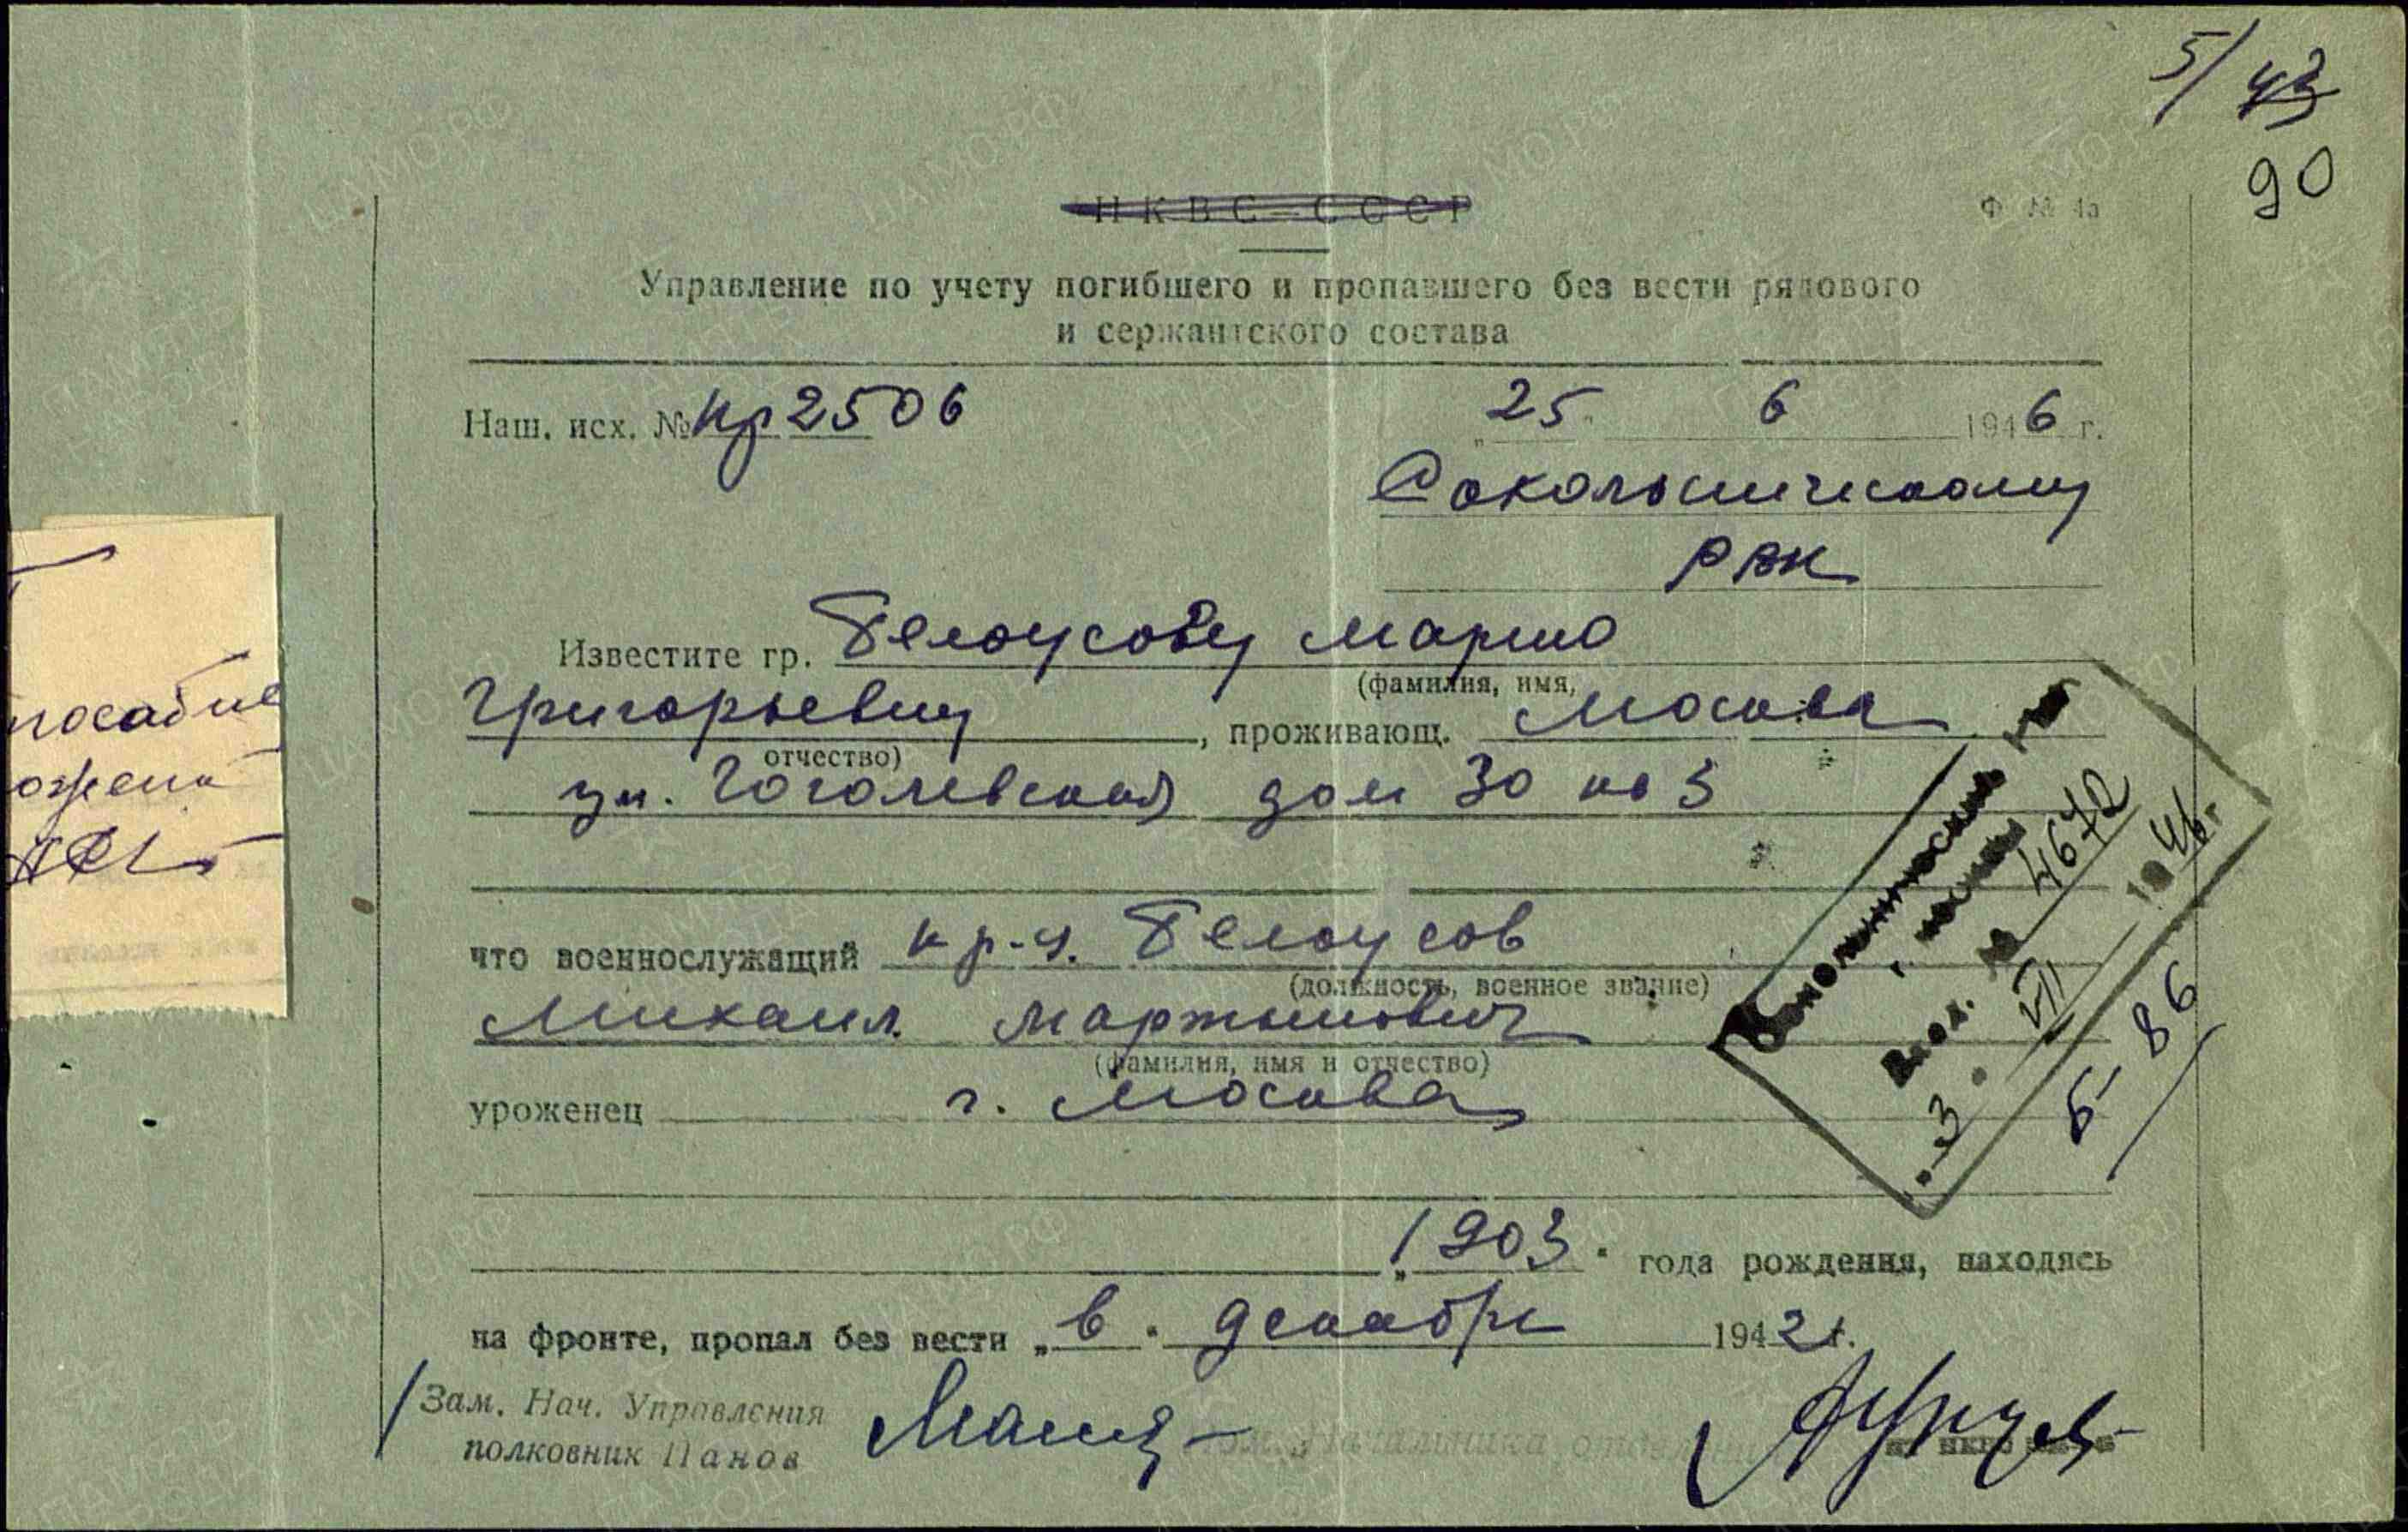 5/ 43
90
НКВС–СССР
Ф № 4а
Управление по учету погибшего и пропавшего без вести рядового
и сержантского состава
Наш. исх. № Кр 2506
„25" 6 1946 г.
Сокольническому
РВК
Известите гр. Белоусову Марию
(фамилия, имя,
Григорьевну, проживающ. Москва
отчество)
ул. Гоголевская дом 30 кв 3
что военнослужащий кр-ц. Белоусов
(должность, военное звание)
Михаил Мартынович
(фамилия, имя и отчество)
уроженец г. Москва
„1903" года рождения, находясь
на фронте, пропал без вести „в" декабре 1942 г.
Зам. Нач. Управления
полковник Панов
Зам. Начальника отделения
Сокольнический РВК
г. Москвы
Вход. № 4672
"3" VII 1946 г
Б-86
пособие